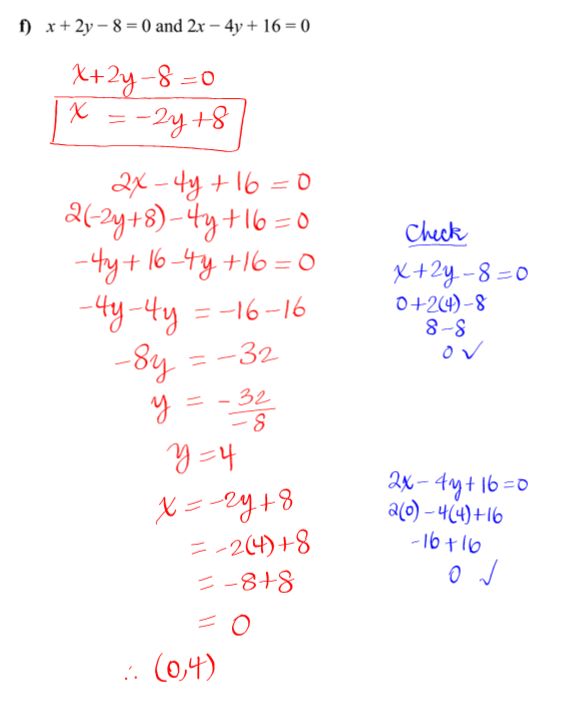 f) x + 2y – 8 = 0 and 2x – 4y + 16 = 0
x+2y-8=0
x = -2y+8
2x-4y+16=0
2(-2y+8)-4y+16=0
-4y+16-4y+16=0
-4y-4y=-16-16
-8y=-32
y = -32/-8
y=4
x=-2y+8
=-2(4)+8
=-8+8
=0
∴ (0,4)
Check
x+2y-8=0
0+2(4)-8
8-8
0 ✓
2x-4y+16=0
2(0)-4(4)+16
-16+16
0 ✓